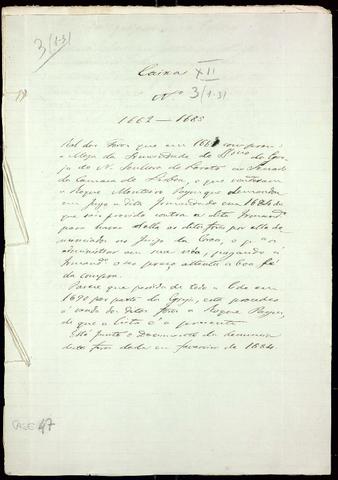 3(1-31
Caixa XII
Nº 3(1-31
1662 — 1685
Rol dos Foros que em 166 comprou
a Meza da Irmandade do Smo da Egre-
ja de N. Senhora do Loreto ao Senado
da Camara de Lisboa, e que
a Roque Monteiro Paym que demandou
em juizo a dita Irmandade em 1684 de
que saiu provido contra a dita Irmande
para haver della os ditos foros por elle de-
nunciados no Juizo da Coroa, o q
administrar em sua vida, pagando a
Irmande o seu preço attenta a boa fé
da compra.
Parece que perdida de todo a Lide em
1690 por parte da Egreja, esta procedeu
á venda dos ditos foros a Roque Paym,
de que a lista é a presente
Está junto o Documento da denuncia
deste foro dada em fevereiro de 1684.
CASE 47